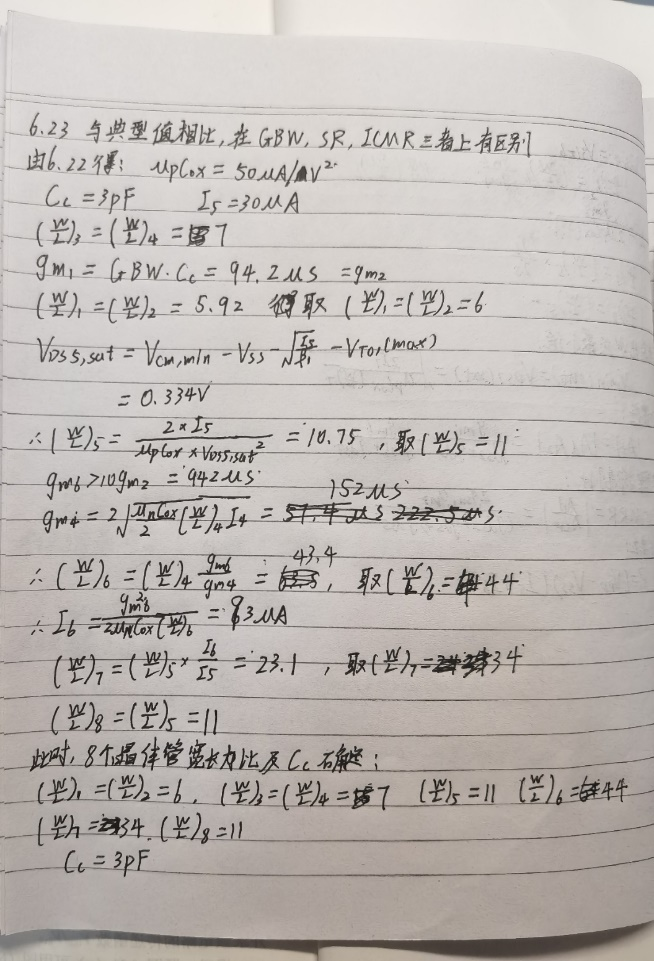 6.23 与典型值相比,在GBW, SR, ICMR三者上有区别
由6.22得: μpCox = 50μA/V²
Cc = 3pF I5 = 30μA
(W/L)3 = (W/L)4 = 7
gm1 = GBW·Cc = 94.2μS = gm2
(W/L)1 = (W/L)2 = 5.92 取 (W/L)1 = (W/L)2 = 6
VDS5,sat = Vcm,min - VSS - √(I5/β1) - VT01(max)
= 0.334V
∴ (W/L)5 = 2×I5 / (μpCox × VDS5,sat²) = 10.75 , 取(W/L)5 = 11
gm6 > 10gm2 = 942μS
gm4 = 2√(μnCox/2 (W/L)4 I4) = 152μS
∴ (W/L)6 = (W/L)4 gm6/gm4 = 43.4 , 取(W/L)6 = 44
∴ I6 = gm6² / (2μnCox(W/L)6) = 93μA
(W/L)7 = (W/L)5 × I6/I5 = 23.1 , 取(W/L)7 = 34
(W/L)8 = (W/L)5 = 11
此时, 8个晶体管宽长比及Cc确定:
(W/L)1 = (W/L)2 = 6 , (W/L)3 = (W/L)4 = 7 (W/L)5 = 11 (W/L)6 = 44
(W/L)7 = 34 . (W/L)8 = 11
Cc = 3pF